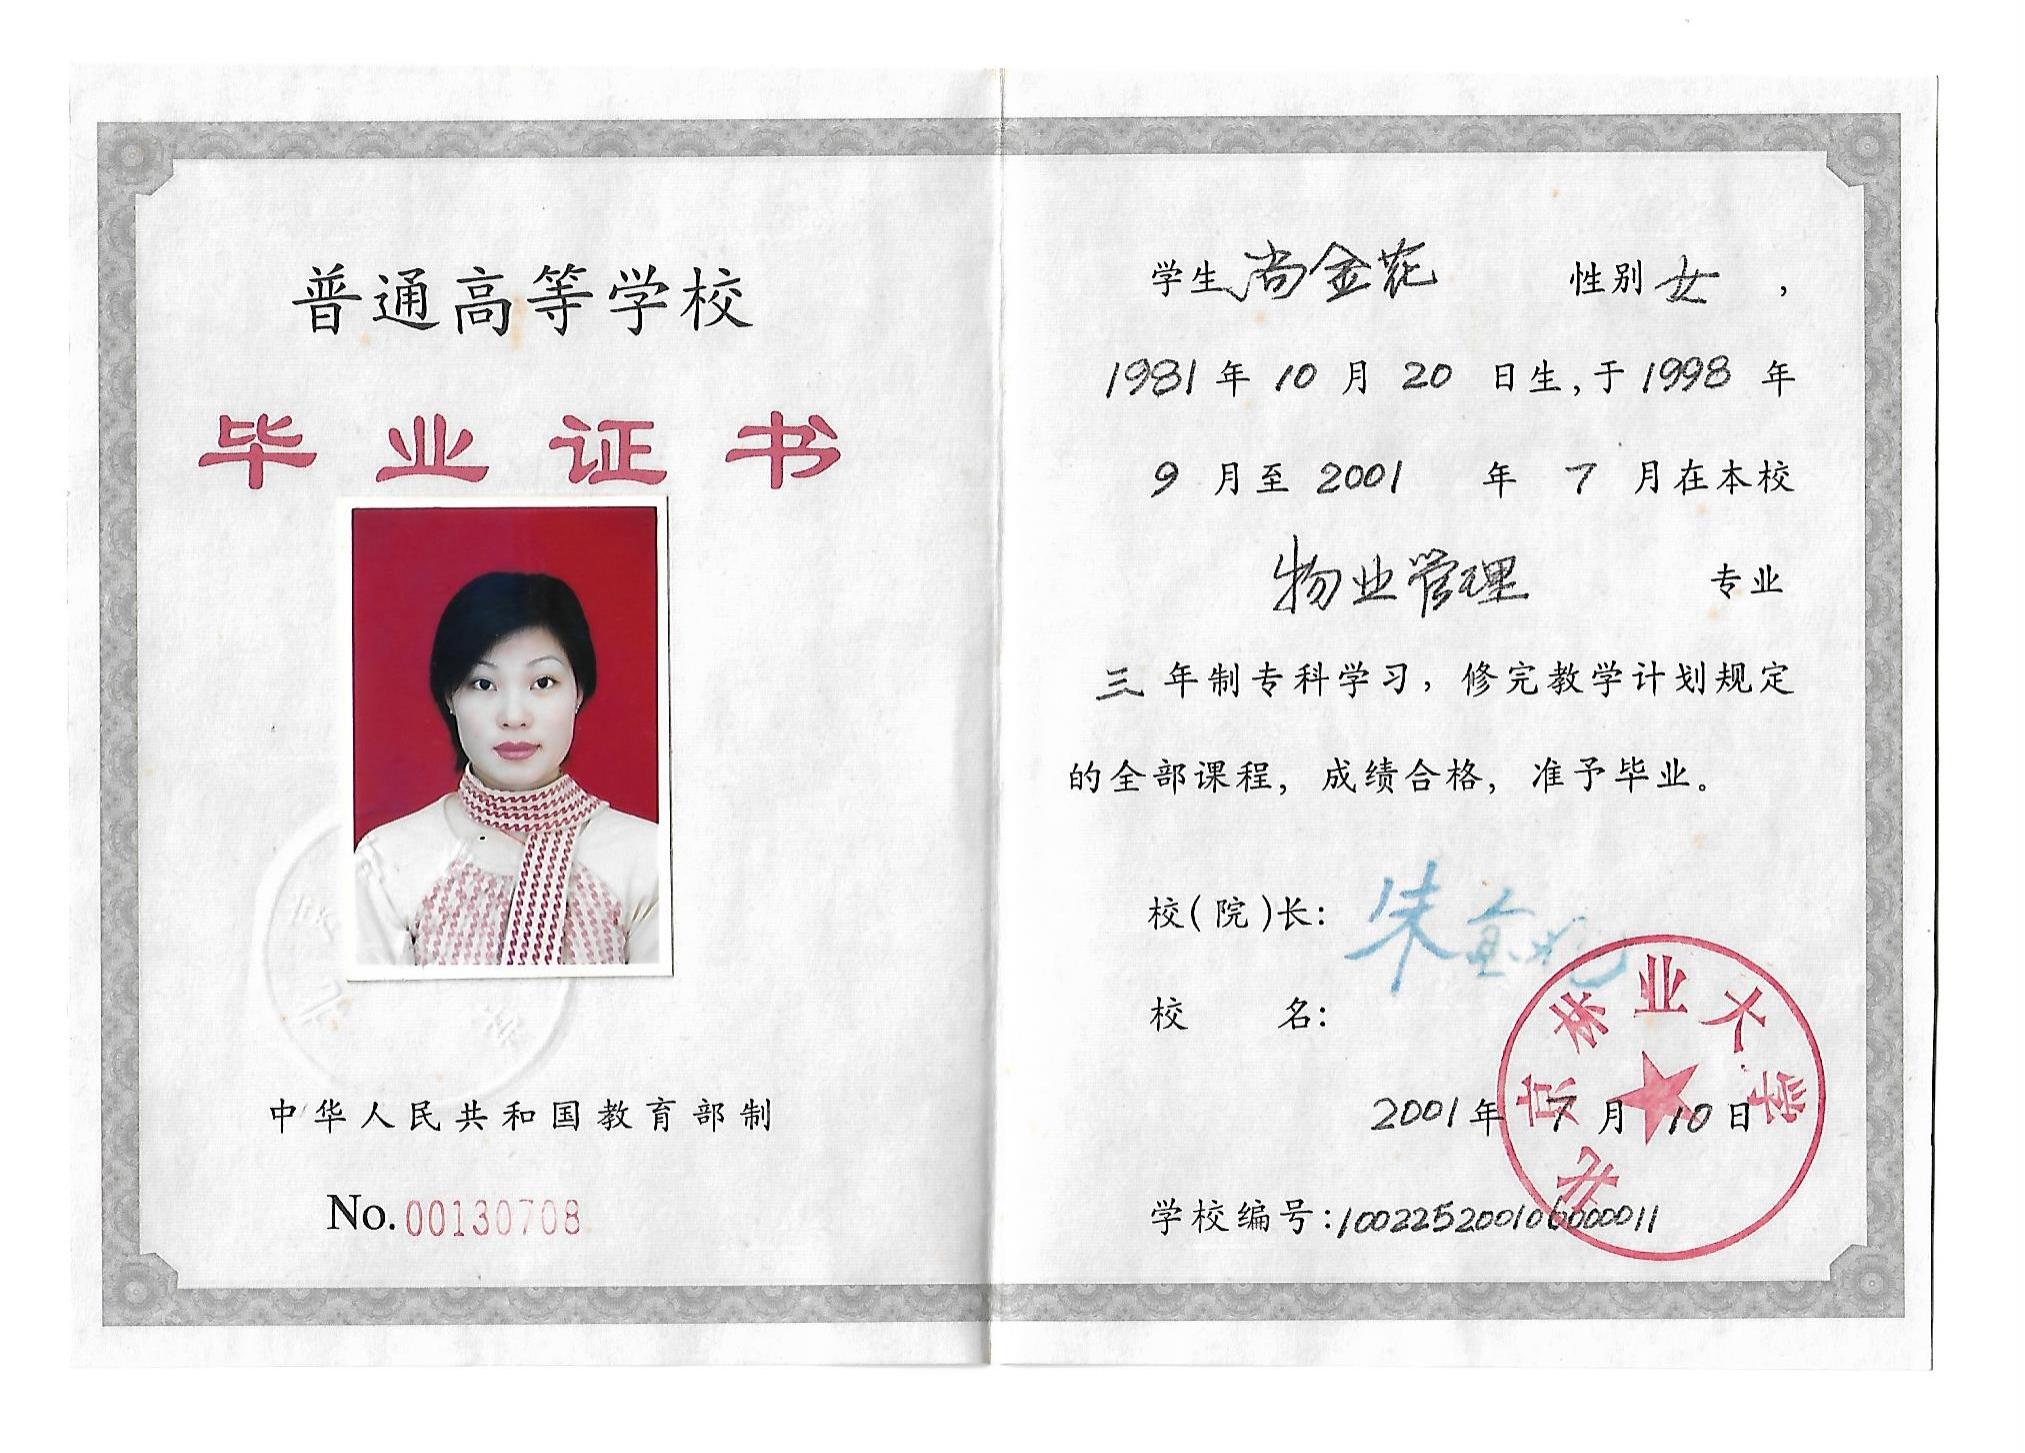 普通高等学校
毕业证书
中华人民共和国教育部制
No. 00130708
学生 尚金花 性别 女 ,
1981 年 10 月 20 日生,于 1998 年
9 月至 2001 年 7 月在本校
物业管理 专业
三 年制专科学习, 修完教学计划规定
的全部课程, 成绩合格, 准予毕业。
校(院)长: 朱金兆
校 名:
北京林业大学
2001 年 7 月 10 日
学校编号: 100225200106000011